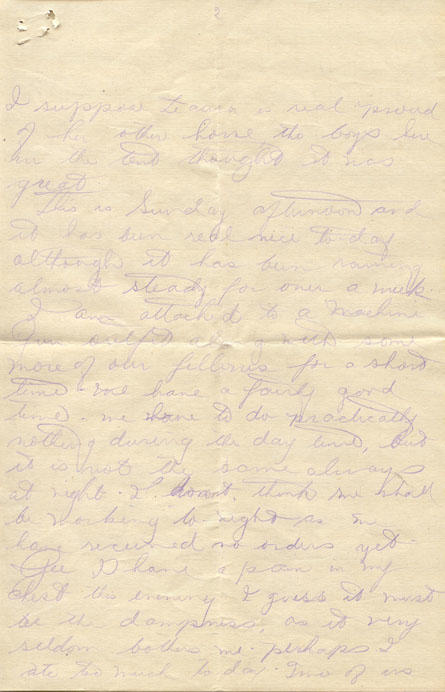 2
I suppose is real proud
of her other horse the boys here
in the tent thought it was
great.
This is Sunday afternoon and
it has been real nice to-day
although it has been raining
almost steady for over a week.
I am attached to a Machine
Gun outfit along with some
more of our fellows for a short
time. We have a fairly good
time. we have to do practically
nothing during the day time, but
it is not the same always
at night. I don't think we shall
be working to-night as we
have received no orders yet.
Gee I have a pain in my
chest this evening I guess it must
be the dampness, as it very
seldom bothers me. perhaps I
ate too much to-day. Two of us